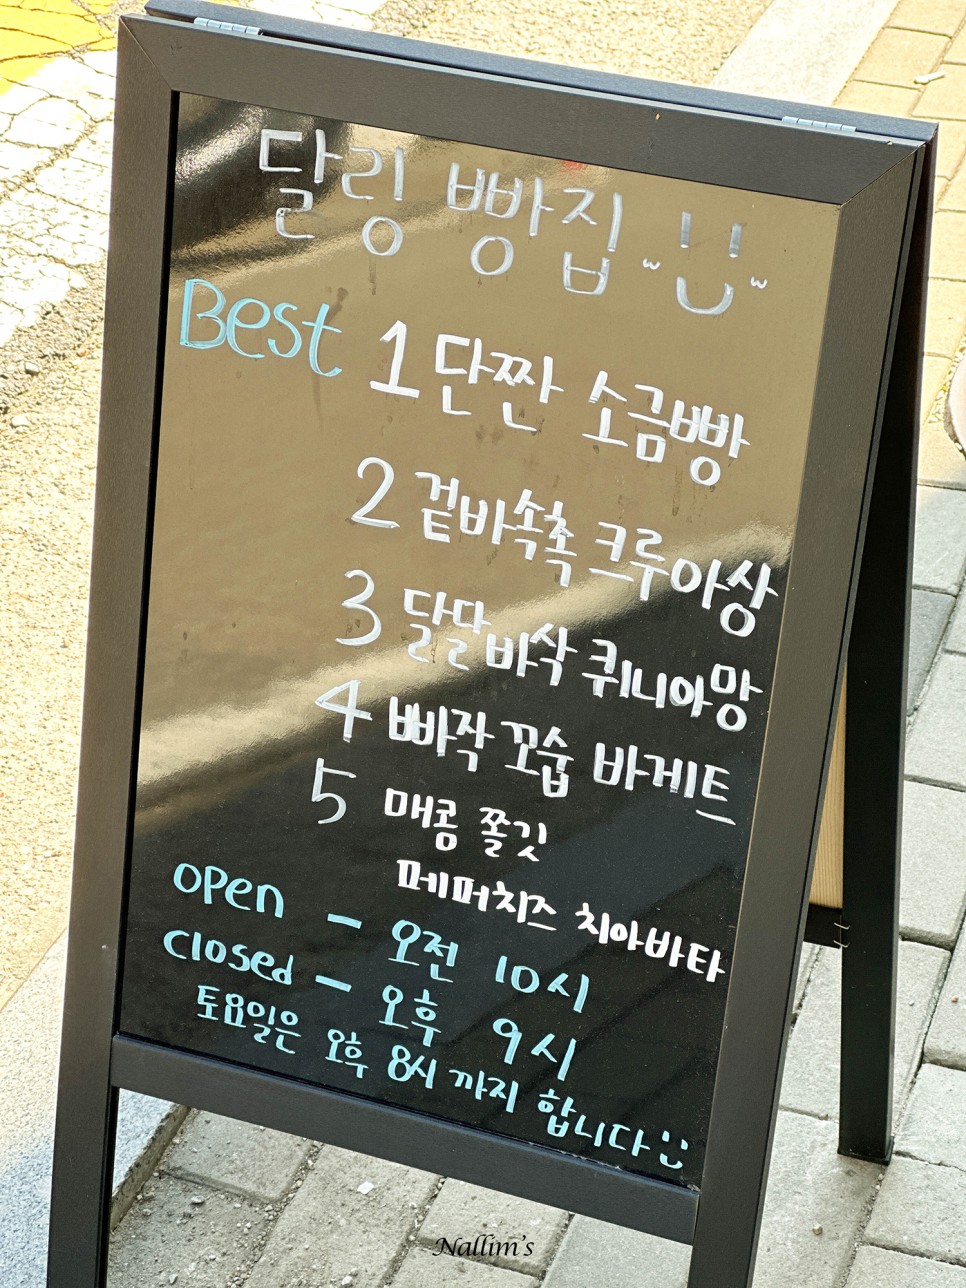 달링 빵집 ~ :) ~
Best 1 단짠 소금빵
2 겉바속촉 크루아상
3 달달바삭 퀴니아망
4 빠작 꼬숩 바게트
5 매콤 쫄깃
페퍼치즈 치아바타
open - 오전 10시
closed - 오후 9시
토요일은 오후 8시 까지 합니다 :)
Nallim's